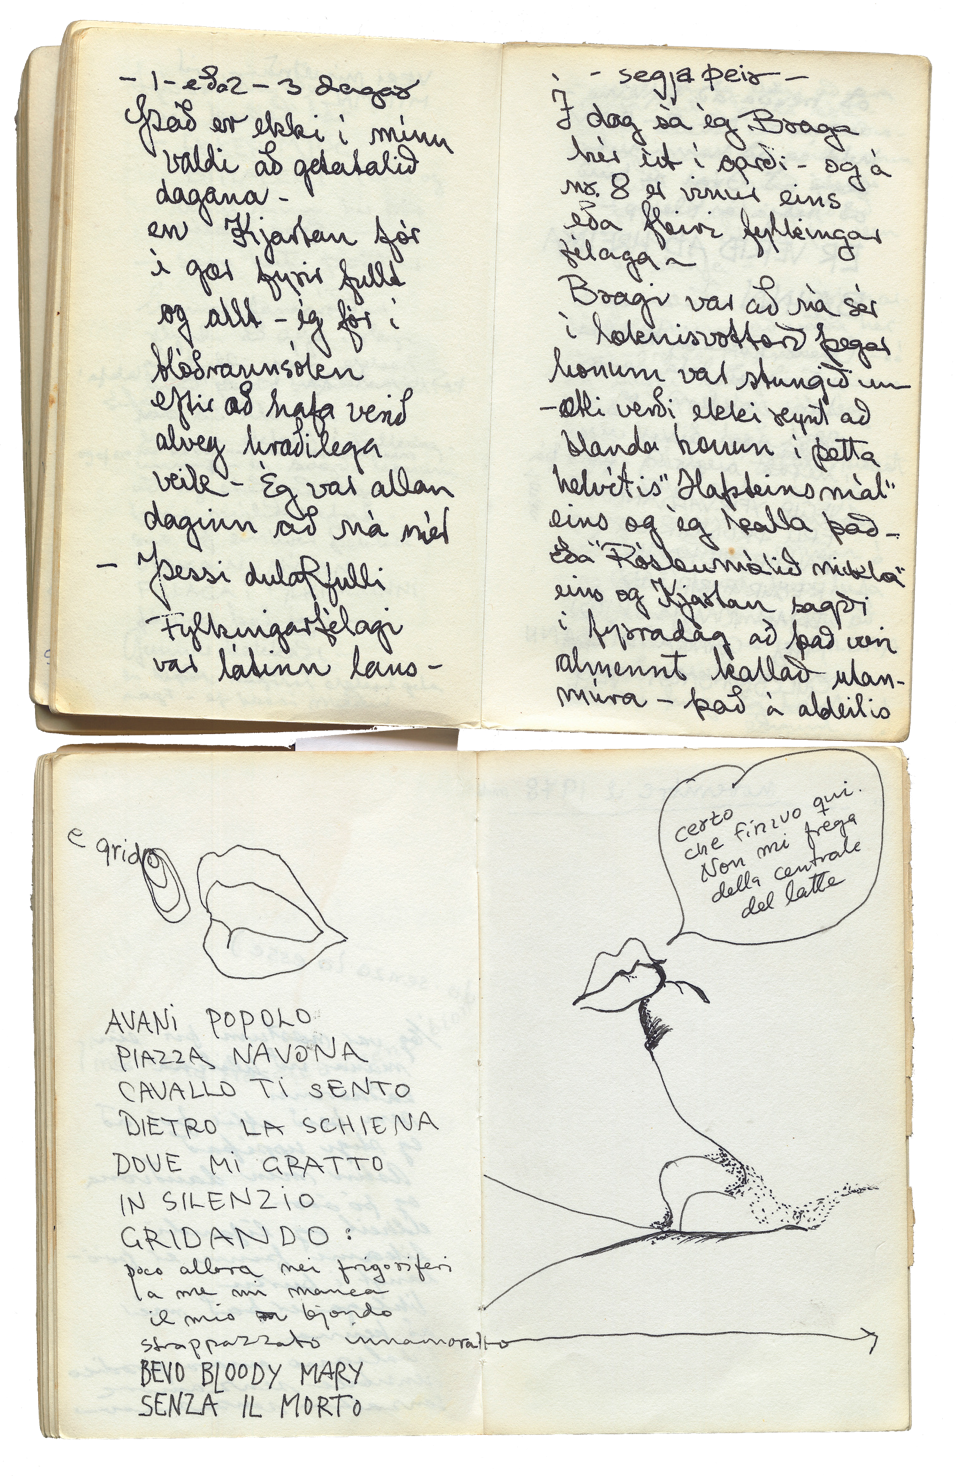 - 1 - eða 2 - 3 dagar
Það er ekki í mínu
valdi að geta talið
dagana -
en Kjartan fór
í gær fyrir fullt
og allt - ég fór í
blóðrannsókn
eftir að hafa verið
alveg hræðilega
veik - Ég var allan
daginn að ná mér
- Þessi dularfulli
Fylkingarfélagi
var látinn laus -
- segja þeir -
Í dag sá ég Braga
hér út í garði - og á
nr. 8 er vinur eins
eða fleiri fylkingar
félaga -
Bragi var að ná sér
í læknisvottorð þegar
honum var stungið inn
- ætli verði ekki reynt að
blanda honum í þetta
helvítis "Hafskeinsmál"
eins og ég kalla það -
Eða "Róskumálið mikla"
eins og Kjartan sagði
í fyrradag að það væri
almennt kallað utan-
múra - það á aldeilis
e grido
AVANI POPOLO
PIAZZA NAVONA
CAVALLO TI SENTO
DIETRO LA SCHIENA
DOVE MI GRATTO
IN SILENZIO
GRIDANDO:
poco allora nei frigoriferi
la me mi manca
il mio bjondo
strappazzato innamorato
BEVO BLOODY MARY
SENZA IL MORTO
certo
che firivo qui.
Non mi frega
della centrale
del latte